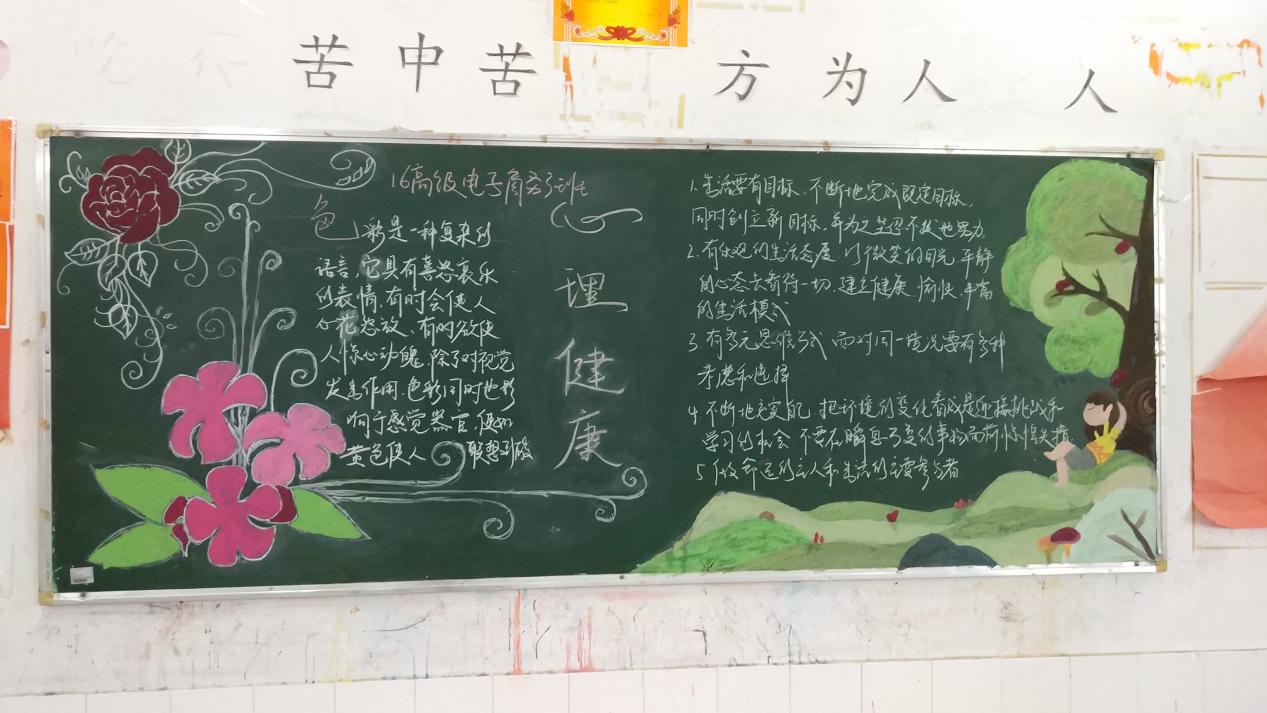 苦中苦 方为人 人
16高级电子商务3班
色彩是一种复杂的
语言,它具有喜怒哀乐
的表情,有时会使人
心花怒放、有时欲使
人惊心动魄,除了对视觉
发生作用,色彩同时也影
响于感觉器官,便如
黄色使人 联想到酸
心理健康
1.生活要有目标,不断地完成既定目标,
同时创立新目标,并为之坚忍不拔地努力
2.有乐观的生活态度,以微笑的目光,平静
的心态去看待一切,建立健康、愉快、丰富
的生活模式
3.有多元思维形式,面对同一境况要有多种
考虑和选择
4.不断地充实自己,把环境的变化看成是迎接挑战和
学习的机会,不要在瞬息万变的事物面前惊惶失措
5.做命运的主人和生活的主要参与者